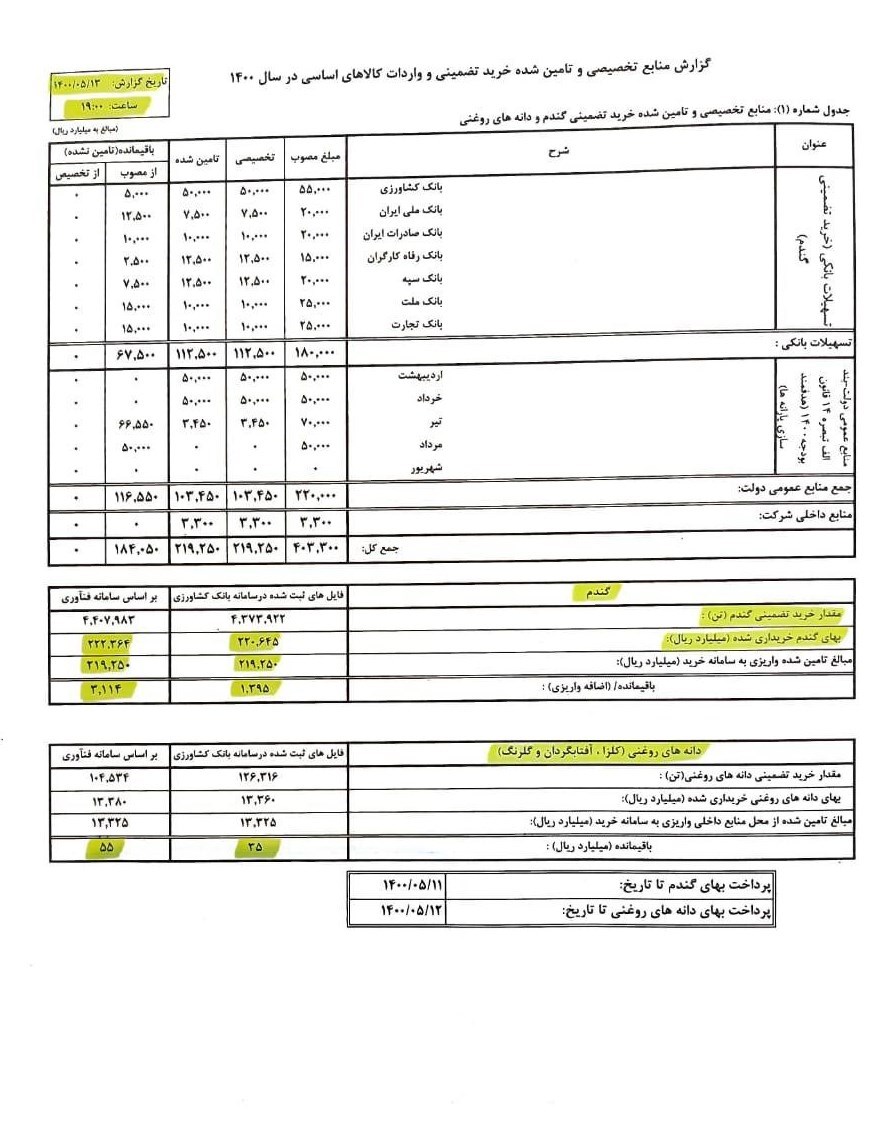 گزارش منابع تخصیصی و تامین شده خرید تضمینی و واردات کالاهای اساسی در سال ۱۴۰۰
تاریخ گزارش: ۱۴۰۰/۰۵/۱۳
ساعت: ۱۹:۰۰
جدول شماره (۱): منابع تخصیصی و تامین شده خرید تضمینی گندم و دانه های روغنی
(مبالغ به میلیارد ریال)
عنوان شرح مبلغ مصوب تخصیصی تامین شده باقیمانده(تامین نشده)
از مصوب از تخصیص
تسهیلات بانکی (خرید تضمینی گندم)
بانک کشاورزی ۵۵,۰۰۰ ۵۰,۰۰۰ ۵۰,۰۰۰ ۵,۰۰۰ ۰
بانک ملی ایران ۲۰,۰۰۰ ۷,۵۰۰ ۷,۵۰۰ ۱۲,۵۰۰ ۰
بانک صادرات ایران ۲۰,۰۰۰ ۱۰,۰۰۰ ۱۰,۰۰۰ ۱۰,۰۰۰ ۰
بانک رفاه کارگران ۱۵,۰۰۰ ۱۲,۵۰۰ ۱۲,۵۰۰ ۲,۵۰۰ ۰
بانک سپه ۲۰,۰۰۰ ۱۲,۵۰۰ ۱۲,۵۰۰ ۷,۵۰۰ ۰
بانک ملت ۲۵,۰۰۰ ۱۰,۰۰۰ ۱۰,۰۰۰ ۱۵,۰۰۰ ۰
بانک تجارت ۲۵,۰۰۰ ۱۰,۰۰۰ ۱۰,۰۰۰ ۱۵,۰۰۰ ۰
تسهیلات بانکی : ۱۸۰,۰۰۰ ۱۱۲,۵۰۰ ۱۱۲,۵۰۰ ۶۷,۵۰۰ ۰
منابع عمومی دولت-بند
الف تبصره ۱۴ قانون
بودجه ۱۴۰۰ (هدفمند
سازی یارانه ها)
اردیبهشت ۵۰,۰۰۰ ۵۰,۰۰۰ ۵۰,۰۰۰ ۰ ۰
خرداد ۵۰,۰۰۰ ۵۰,۰۰۰ ۵۰,۰۰۰ ۰ ۰
تیر ۷۰,۰۰۰ ۳,۴۵۰ ۳,۴۵۰ ۶۶,۵۵۰ ۰
مرداد ۵۰,۰۰۰ ۰ ۰ ۵۰,۰۰۰ ۰
شهریور ۰ ۰ ۰ ۰ ۰
جمع منابع عمومی دولت: ۲۲۰,۰۰۰ ۱۰۳,۴۵۰ ۱۰۳,۴۵۰ ۱۱۶,۵۵۰ ۰
منابع داخلی شرکت: ۳,۳۰۰ ۳,۳۰۰ ۳,۳۰۰ ۰ ۰
جمع کل: ۴۰۳,۳۰۰ ۲۱۹,۲۵۰ ۲۱۹,۲۵۰ ۱۸۴,۰۵۰ ۰
گندم فایل های ثبت شده درسامانه بانک کشاورزی بر اساس سامانه فنآوری
مقدار خرید تضمینی گندم (تن) : ۴,۳۷۳,۹۲۲ ۴,۴۰۷,۹۸۳
بهای گندم خریداری شده (میلیارد ریال): ۲۲۰,۶۴۵ ۲۲۲,۳۶۴
مبالغ تامین شده واریزی به سامانه خرید (میلیارد ریال): ۲۱۹,۲۵۰ ۲۱۹,۲۵۰
باقیمانده/ (اضافه واریزی) : ۱,۳۹۵ ۳,۱۱۴
دانه های روغنی (کلزا ، آفتابگردان و گلرنگ) فایل های ثبت شده درسامانه بانک کشاورزی بر اساس سامانه فنآوری
مقدار خرید تضمینی دانه های روغنی(تن) : ۱۲۶,۳۱۶ ۱۰۴,۵۳۴
بهای دانه های روغنی خریداری شده (میلیارد ریال): ۱۳,۳۶۰ ۱۳,۳۸۰
مبالغ تامین شده از محل منابع داخلی واریزی به سامانه خرید (میلیارد ریال): ۱۳,۳۲۵ ۱۳,۳۲۵
باقیمانده (میلیارد ریال) : ۳۵ ۵۵
پرداخت بهای گندم تا تاریخ: ۱۴۰۰/۰۵/۱۱
پرداخت بهای دانه های روغنی تا تاریخ: ۱۴۰۰/۰۵/۱۲